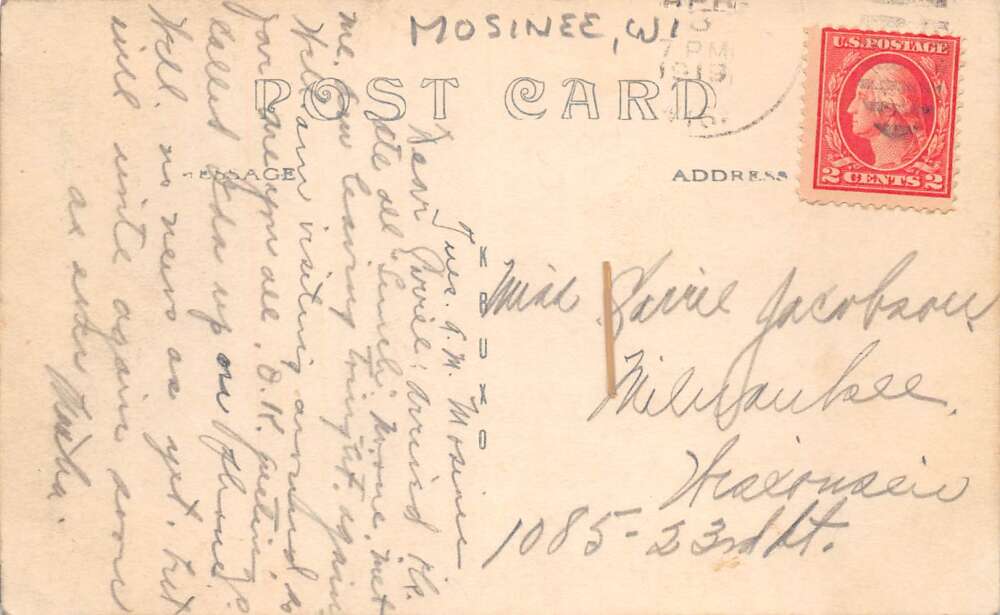 MOSINEE, WI
7 PM
1919
POST CARD
MESSAGE
ADDRESS
U.S. POSTAGE
2 CENTS 2
KRUXO
Tues. P.M. Mosinee
Dear Sarrie: Arrived Ok.
Ate all lunch. Mone. met
me. Am leaving tonight again
Will am visiting around so
for. are you all O.K.
called Ida up on phone
Well, no news as yet. but
will write again soon
as ever
Miss Sarrie Jacobson,
Milwaukee,
Wisconsin
1085-23rd St.